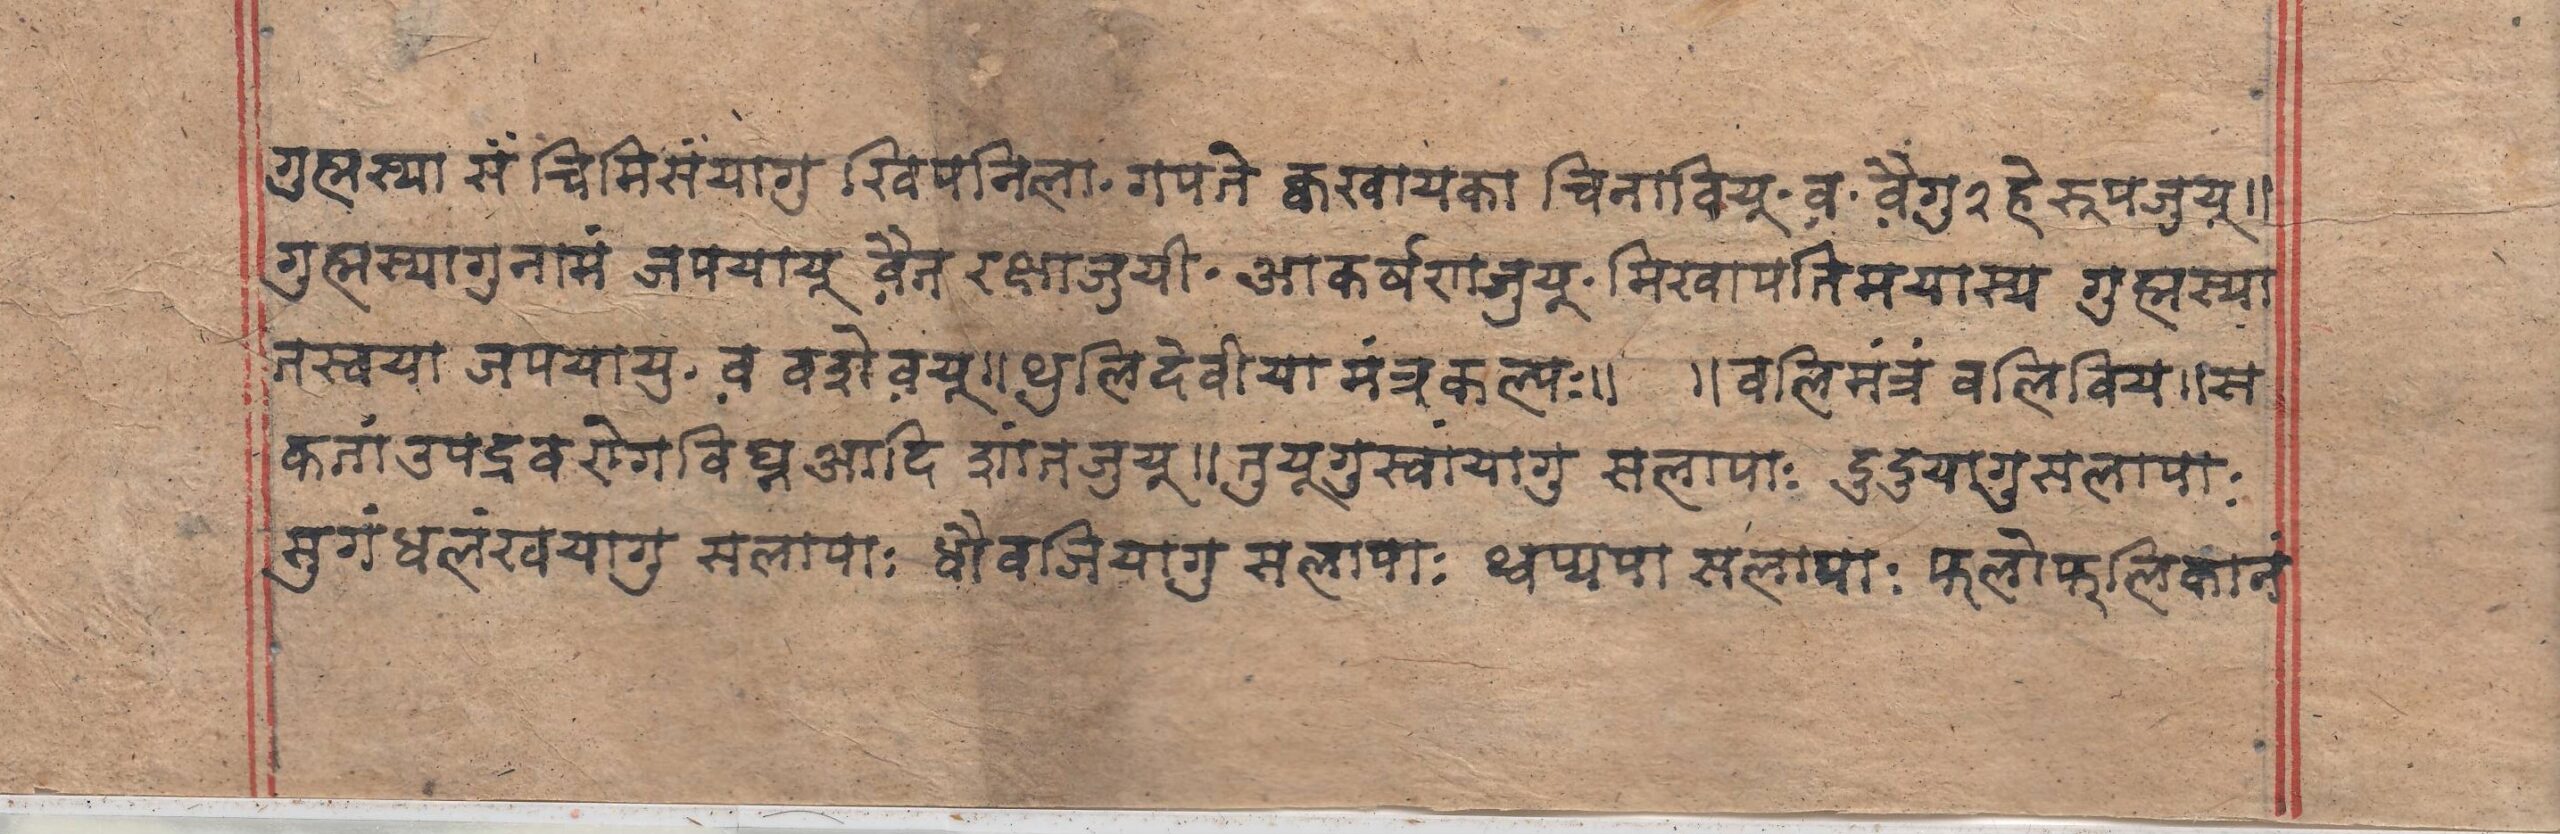 गुह्मस्या सं चिमिसंयागु खिपनिला· गपते क्वखायका चिनाविय्· व़· वै़गु२ हे रूपजुय्॥
गुह्मस्यागुनामं जपयाय् वै़त रक्षाजुयी· आकर्षराजुय्· मिखापतिमयास्य गुह्मस्या
तस्वया जपयायु· व़ वशेव़य्॥ थुलिदेवीया मंत्रकल्पः॥ ॥वलिमंत्रं वलिविय॥स
कतां उपद्रव रोग विघ्न आदि शांतजुय्॥ तुयूगुस्वांयागु सलापाः दुदुयागुसलापाः
सुगंधलंखयागु सलापाः धौवजियागु सलापाः थ्वप्यपा सलापाः फलोफुलिकानं